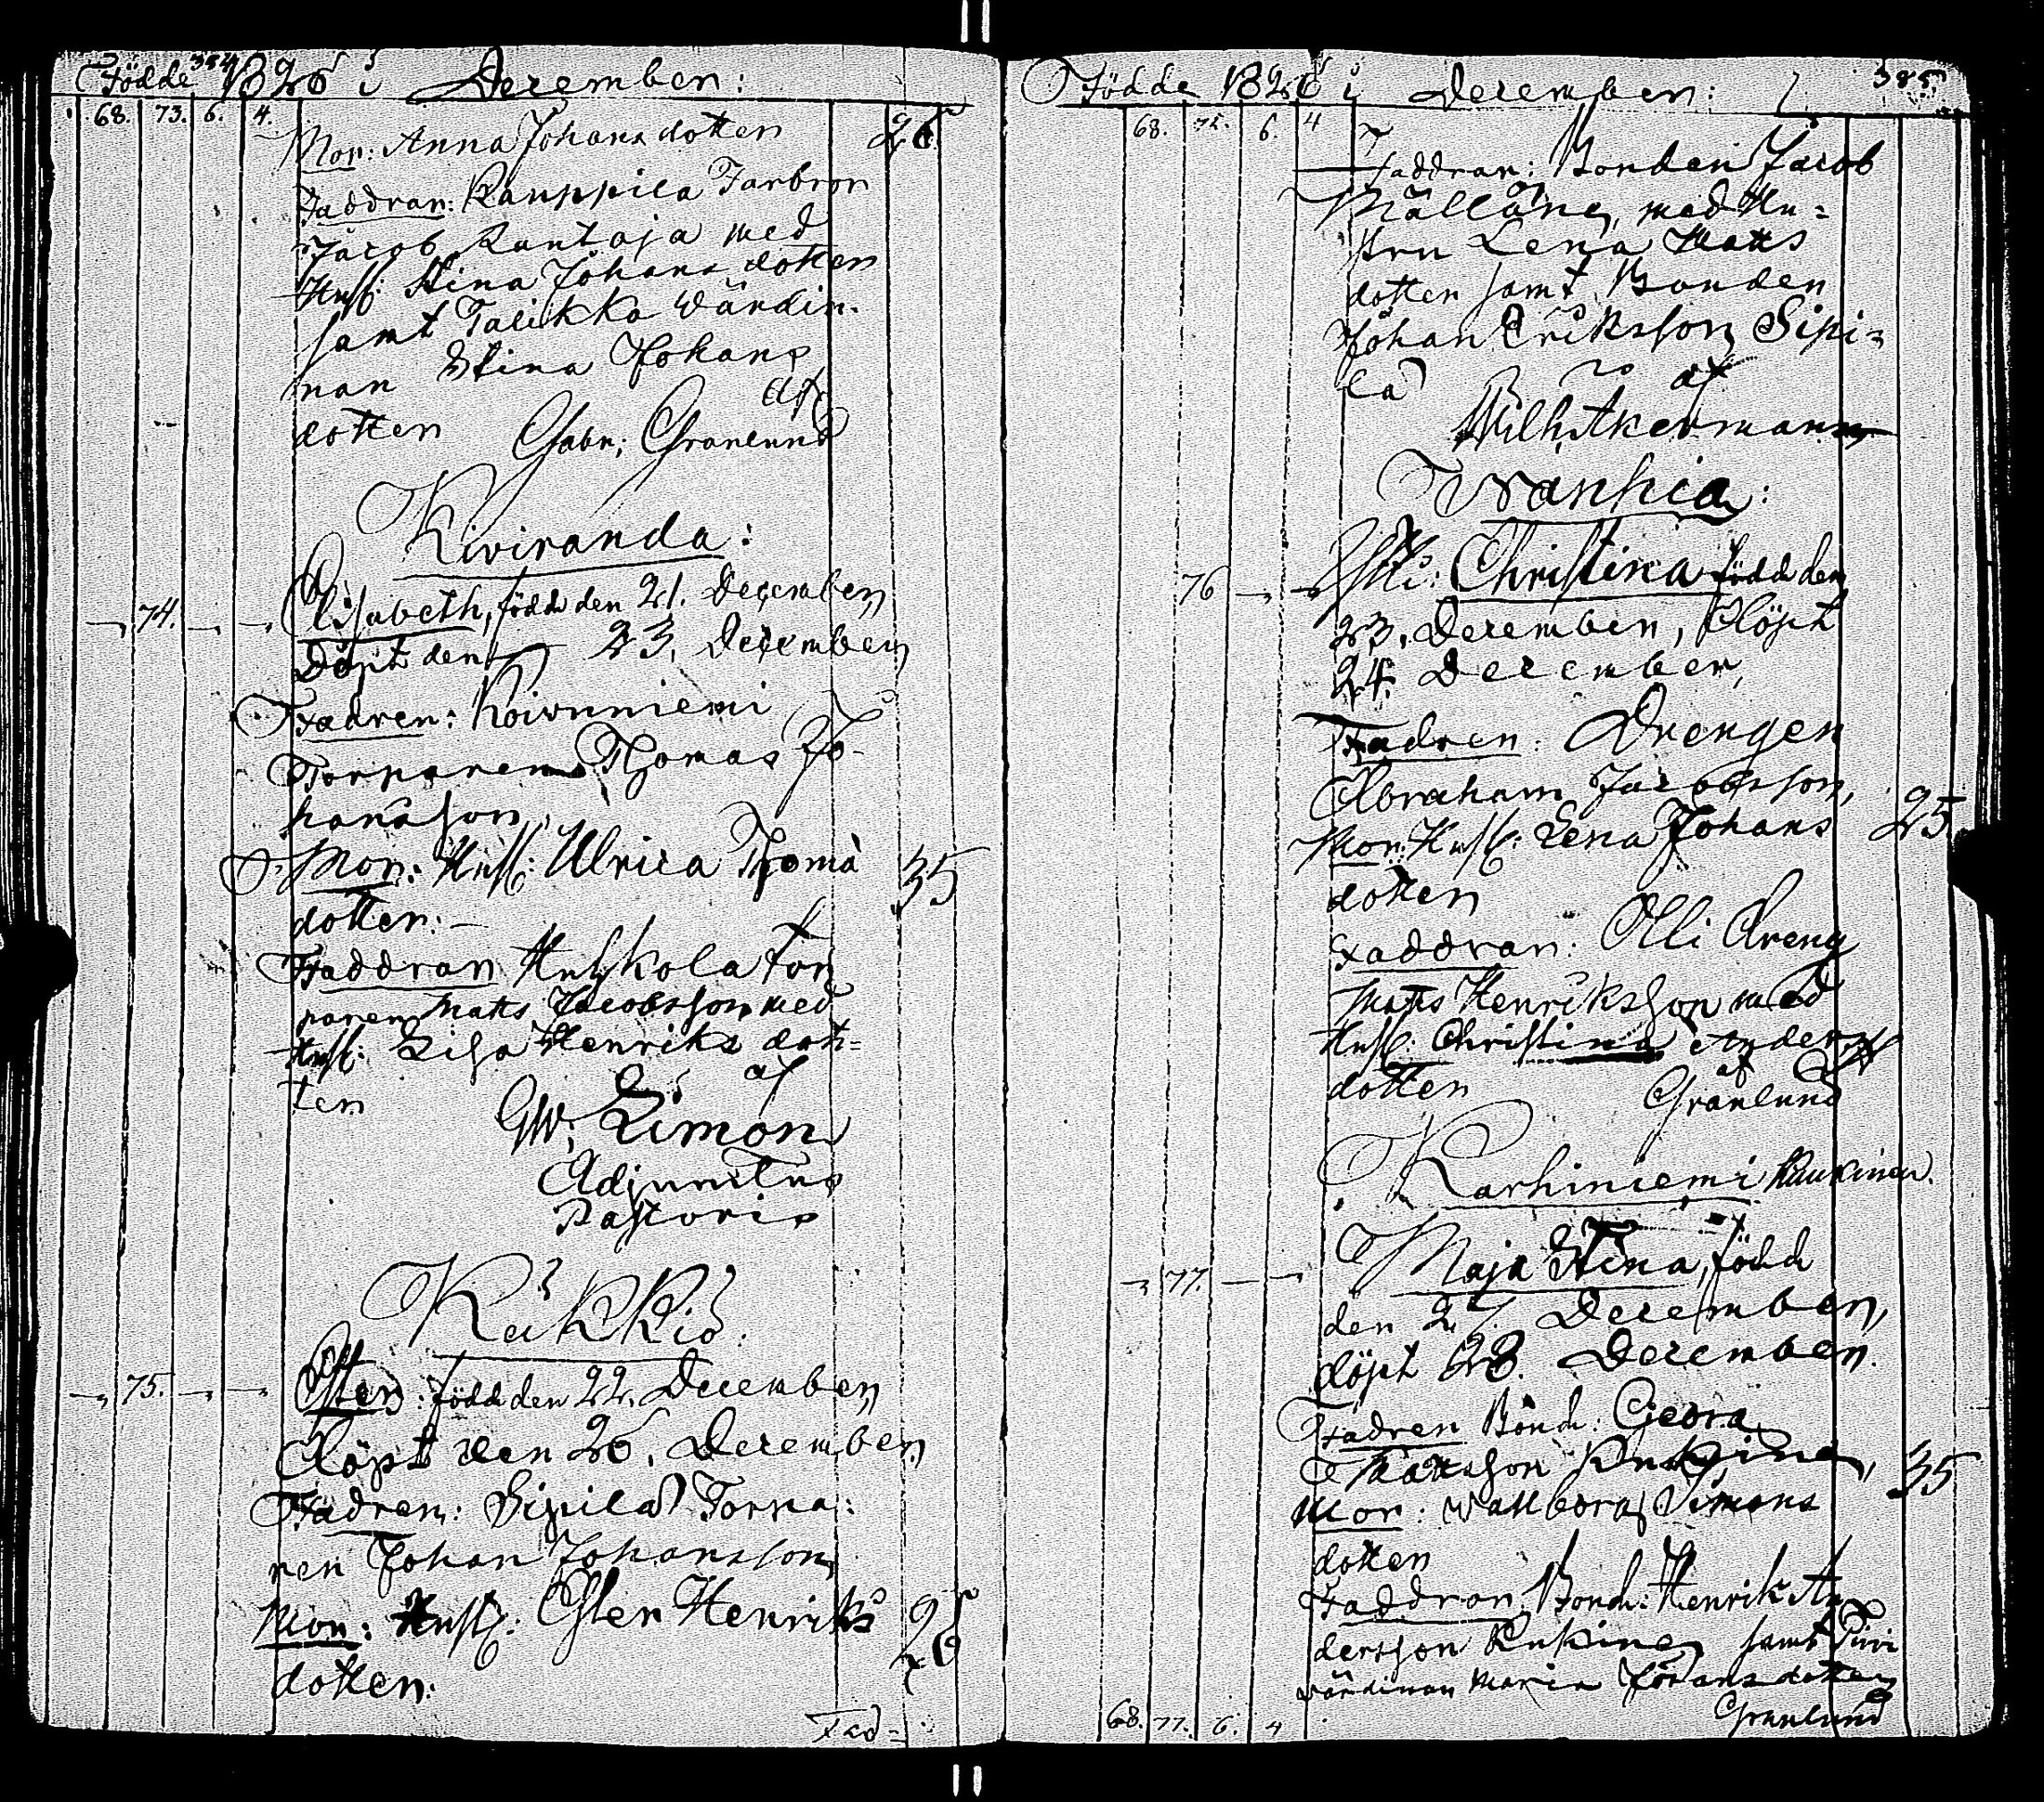 Födde 1826 i December:
384
68. 73. 6. 4.
Mor: Anna Johans dotter 26
Faddrar: Kauppila Farbror
Jacob Rantaja med
Hust: Stina Johans dotter
samt Talikka Värdin-
nan Stina Johans
dotter af
Gabr: Granlund
Kiviranda:
74. Elisabeth, född den 21. December
Döpt den 23. December
Fadren: Koivuniemi
Torparen Thomas Jo-
hansson
Mor: Hust: Ulrica Thoma 35
dotter:
Faddrar Huhkola Tor
paren Matts Jacobsson med
Hust: Lisa Henriks dot=
ter
af
Gw: Limon
Adjunctus
Pastoris
Käkkiö:
75. Ester: född den 22. December
Döpt den 26. December
Fadren: Sipilä Torpa:
ren Johan Johansson
Mor: Hust: Ester Henriks 26
dotter:
Fad=
Födde 1826 i December: 385
68. 75. 6. 4
Faddrar: Bonden Jacob
Mällöng, med Hu=
stru Lena Matts
dotter samt Bonden
Johan Eriksson Sipi=
lä
af
Wilh Akermann
Wranhia:
76 Christina född den
23. December, Döpt
24. December,
Fadren: Drengen
Abraham Jacobsson,
Mor: Hust: Lena Johans 25
dotter
Faddrar: Olli dreng
Matts Henriksson med
Hust: Christina Anders
dotter af
Granlund
Karhiniemi Ruukinen.
77. Maja Stina, född
den 27 December,
döpt 28. December.
Fadren Bond: Georg
Mattsson Ruskinen, 35
Mor: Wallborg Simons
dotter
Faddrar: Bond: Henrik An
dersson Ruskinen samt Piiri
värdinnan Maria Johans dotter
Granlund
68. 77. 6. 4